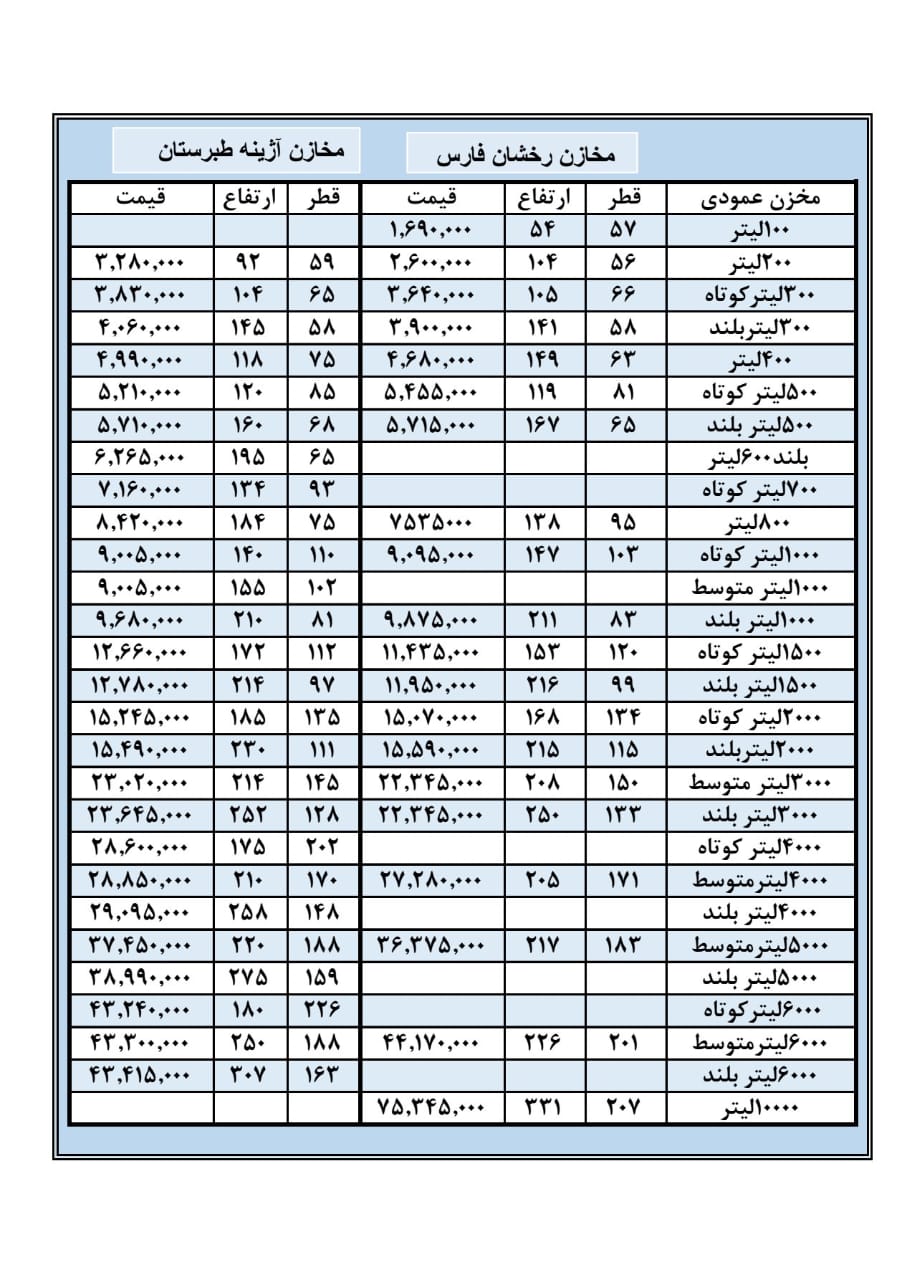 مخازن رخشان فارس	مخازن آژینه طبرستان
مخزن عمودی	قطر	ارتفاع	قیمت	قطر	ارتفاع	قیمت
۱۰۰لیتر	۵۷	۵۴	۱,۶۹۰,۰۰۰
۲۰۰لیتر	۵۶	۱۰۴	۲,۶۰۰,۰۰۰	۵۹	۹۲	۳,۲۸۰,۰۰۰
۳۰۰لیترکوتاه	۶۶	۱۰۵	۳,۶۴۰,۰۰۰	۶۵	۱۰۴	۳,۸۳۰,۰۰۰
۳۰۰لیتربلند	۵۸	۱۴۱	۳,۹۰۰,۰۰۰	۵۸	۱۴۵	۴,۰۶۰,۰۰۰
۴۰۰لیتر	۶۳	۱۴۹	۴,۶۸۰,۰۰۰	۷۵	۱۱۸	۴,۹۹۰,۰۰۰
۵۰۰لیتر کوتاه	۸۱	۱۱۹	۵,۴۵۵,۰۰۰	۸۵	۱۲۰	۵,۲۱۰,۰۰۰
۵۰۰لیتر بلند	۶۵	۱۶۷	۵,۷۱۵,۰۰۰	۶۸	۱۶۰	۵,۷۱۰,۰۰۰
بلند۶۰۰لیتر	۶۵	۱۹۵	۶,۲۶۵,۰۰۰
۷۰۰لیتر کوتاه	۹۳	۱۳۴	۷,۱۶۰,۰۰۰
۸۰۰لیتر	۹۵	۱۳۸	۷۵۳۵۰۰۰	۷۵	۱۸۴	۸,۴۲۰,۰۰۰
۱۰۰۰لیتر کوتاه	۱۰۳	۱۴۷	۹,۰۹۵,۰۰۰	۱۱۰	۱۴۰	۹,۰۰۵,۰۰۰
۱۰۰۰لیتر متوسط	۱۰۲	۱۵۵	۹,۰۰۵,۰۰۰
۱۰۰۰لیتر بلند	۸۳	۲۱۱	۹,۸۷۵,۰۰۰	۸۱	۲۱۰	۹,۶۸۰,۰۰۰
۱۵۰۰لیتر کوتاه	۱۲۰	۱۵۳	۱۱,۴۳۵,۰۰۰	۱۱۲	۱۷۲	۱۲,۶۶۰,۰۰۰
۱۵۰۰لیتر بلند	۹۹	۲۱۶	۱۱,۹۵۰,۰۰۰	۹۷	۲۱۴	۱۲,۷۸۰,۰۰۰
۲۰۰۰لیتر کوتاه	۱۳۴	۱۶۸	۱۵,۰۷۰,۰۰۰	۱۳۵	۱۸۵	۱۵,۲۴۵,۰۰۰
۲۰۰۰لیتربلند	۱۱۵	۲۱۵	۱۵,۵۹۰,۰۰۰	۱۱۱	۲۳۰	۱۵,۴۹۰,۰۰۰
۳۰۰۰لیتر متوسط	۱۵۰	۲۰۸	۲۲,۳۴۵,۰۰۰	۱۴۵	۲۱۴	۲۳,۰۲۰,۰۰۰
۳۰۰۰لیتر بلند	۱۳۳	۲۵۰	۲۲,۳۴۵,۰۰۰	۱۲۸	۲۵۲	۲۳,۶۴۵,۰۰۰
۴۰۰۰لیتر کوتاه	۲۰۲	۱۷۵	۲۸,۶۰۰,۰۰۰
۴۰۰۰لیترمتوسط	۱۷۱	۲۰۵	۲۷,۲۸۰,۰۰۰	۱۷۰	۲۱۰	۲۸,۸۵۰,۰۰۰
۴۰۰۰لیتر بلند	۱۴۸	۲۵۸	۲۹,۰۹۵,۰۰۰
۵۰۰۰لیترمتوسط	۱۸۳	۲۱۷	۳۶,۳۷۵,۰۰۰	۱۸۸	۲۲۰	۳۷,۴۵۰,۰۰۰
۵۰۰۰لیتر بلند	۱۵۹	۲۷۵	۳۸,۹۹۰,۰۰۰
۶۰۰۰لیترکوتاه	۲۲۶	۱۸۰	۴۳,۲۴۰,۰۰۰
۶۰۰۰لیترمتوسط	۲۰۱	۲۲۶	۴۴,۱۷۰,۰۰۰	۱۸۸	۲۵۰	۴۳,۳۰۰,۰۰۰
۶۰۰۰لیتر بلند	۱۶۳	۳۰۷	۴۳,۴۱۵,۰۰۰
۱۰۰۰۰لیتر	۲۰۷	۳۳۱	۷۵,۳۴۵,۰۰۰